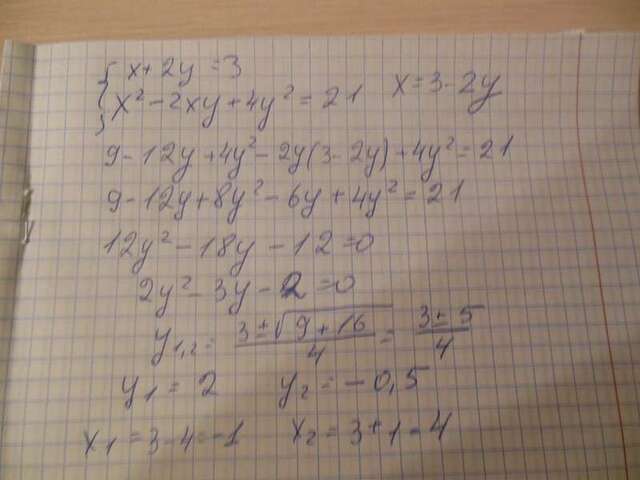 { x + 2y = 3
x² - 2xy + 4y² = 21 x = 3 - 2y
9 - 12y + 4y² - 2y(3 - 2y) + 4y² = 21
9 - 12y + 8y² - 6y + 4y² = 21
12y² - 18y - 12 = 0
2y² - 3y - 2 = 0
y₁,₂ = (3 ± √(9 + 16))/4 = (3 ± 5)/4
y₁ = 2 y₂ = -0,5
x₁ = 3 - 4 = -1 x₂ = 3 + 1 = 4